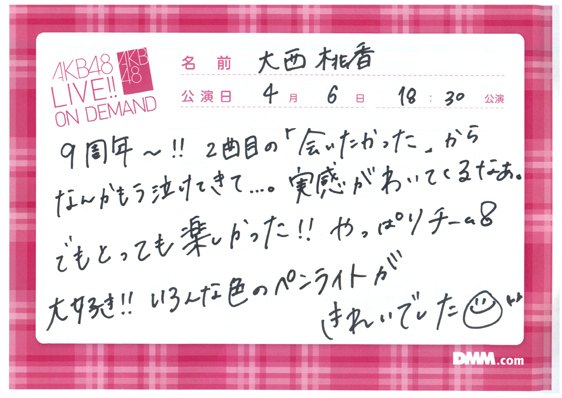 AKB48
LIVE!!
ON DEMAND
AKB
48
名前 大西桃香
公演日 4月 6日 18:30 公演
9周年〜!! 2曲目の「会いたかった」から
なんかもう泣けてきて...。実感がわいてくるなぁ。
でもとっても楽しかった!! やっぱりチーム8
大好き!! いろんな色のペンライトが
きれいでした
DMM.com